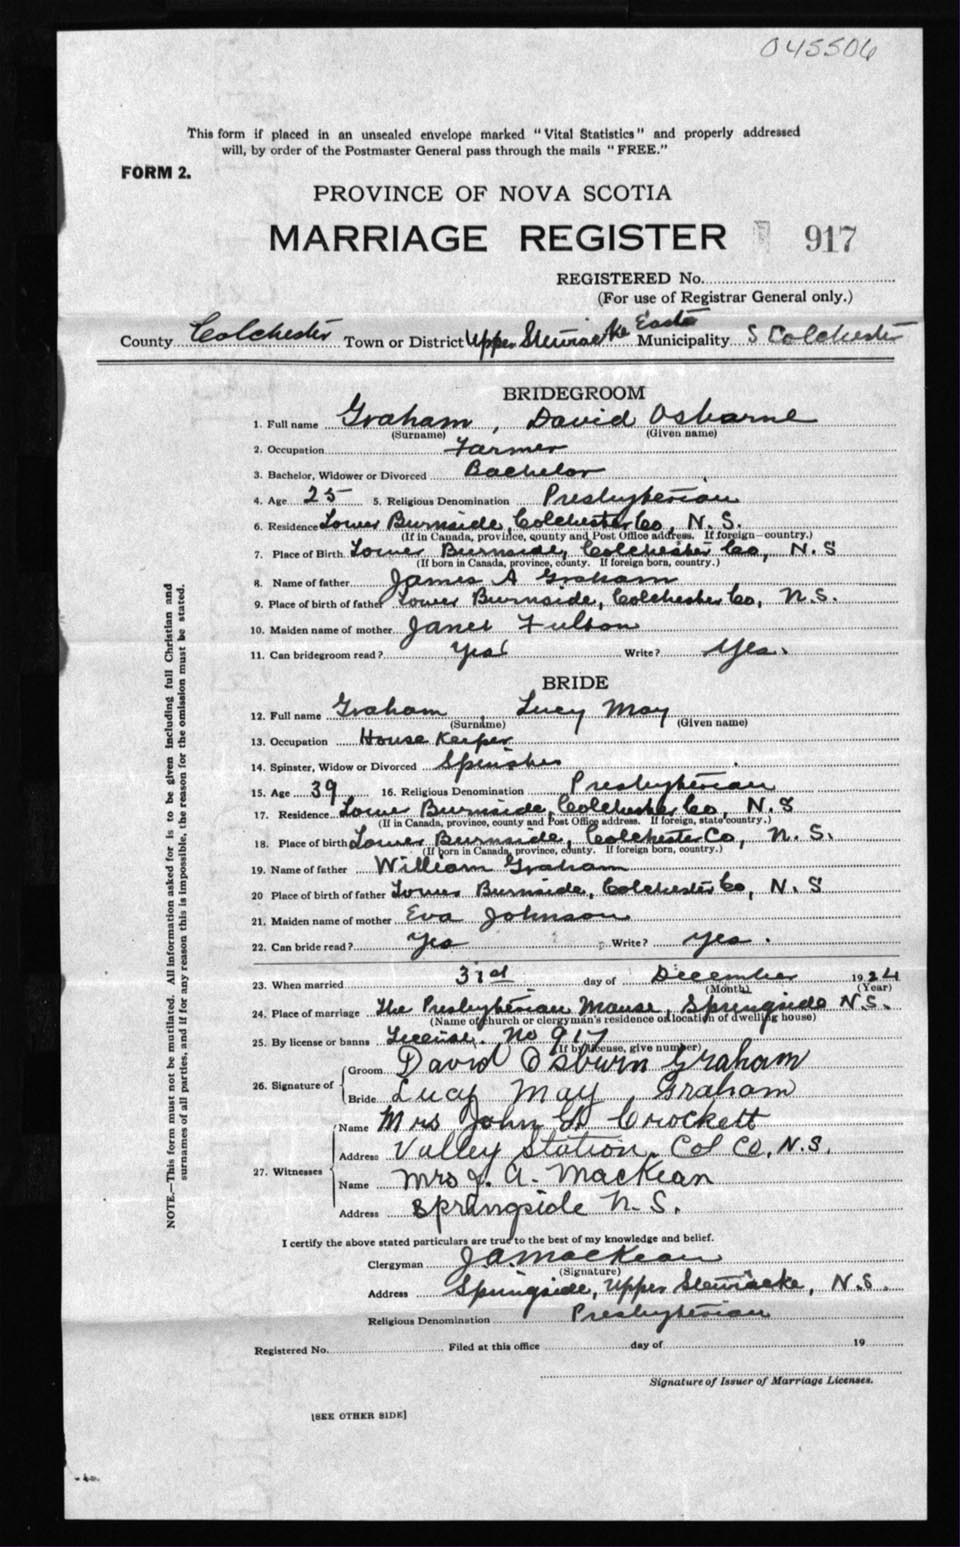 045506
This form if placed in an unsealed envelope marked "Vital Statistics" and properly addressed
will, by order of the Postmaster General pass through the mails "FREE."
FORM 2.
PROVINCE OF NOVA SCOTIA
MARRIAGE REGISTER 917
REGISTERED No.
(For use of Registrar General only.)
County Colchester Town or District Upper Stewiacke East Municipality S Colchester
BRIDEGROOM
1. Full name Graham, David Osborne
(Surname) (Given name)
2. Occupation Farmer
3. Bachelor, Widower or Divorced Bachelor
4. Age 25 5. Religious Denomination Presbyterian
6. Residence Lower Burnside, Colchester Co, N.S.
(If in Canada, province, county and Post Office address. If foreign country.)
7. Place of Birth Lower Burnside, Colchester Co, N.S
(If born in Canada, province, county. If foreign born, country.)
8. Name of father James A Graham
9. Place of birth of father Lower Burnside, Colchester Co, N.S.
10. Maiden name of mother Janet Fulton
11. Can bridegroom read? Yes Write? Yes.
BRIDE
12. Full name Graham, Lucy May
(Surname) (Given name)
13. Occupation House Keeper
14. Spinster, Widow or Divorced Spinster
15. Age 39 16. Religious Denomination Presbyterian
17. Residence Lower Burnside, Colchester Co, N.S
(If in Canada, province, county and Post Office address. If foreign, state country.)
18. Place of birth Lower Burnside, Colchester Co, N.S.
(If born in Canada, province, county. If foreign born, country.)
19. Name of father William Graham
20 Place of birth of father Lower Burnside, Colchester Co, N.S
21. Maiden name of mother Eva Johnson
22. Can bride read? Yes Write? yes.
23. When married 31st day of December 1924
(Month) (Year)
24. Place of marriage The Presbyterian Manse, Springside N.S.
(Name of church or clergyman's residence or location of dwelling house)
25. By license or banns License. No 917
(If by license, give number)
26. Signature of
Groom David Osburn Graham
Bride Lucy May Graham
27. Witnesses
Name Mrs John D Crockett
Address Valley Station. Col Co, N.S.
Name Mrs J. A. MacKean
Address Springside N.S.
I certify the above stated particulars are true to the best of my knowledge and belief.
Clergyman J A MacKean
(Signature)
Address Springside, Upper Stewiacke, N.S.
Religious Denomination Presbyterian
Registered No. Filed at this office day of 19
Signature of Issuer of Marriage Licenses.
[SEE OTHER SIDE]
NOTE.—This form must not be mutilated. All information asked for is to be given including full Christian and
surnames of all parties, and if for any reason this is impossible, the reason for the omission must be stated.